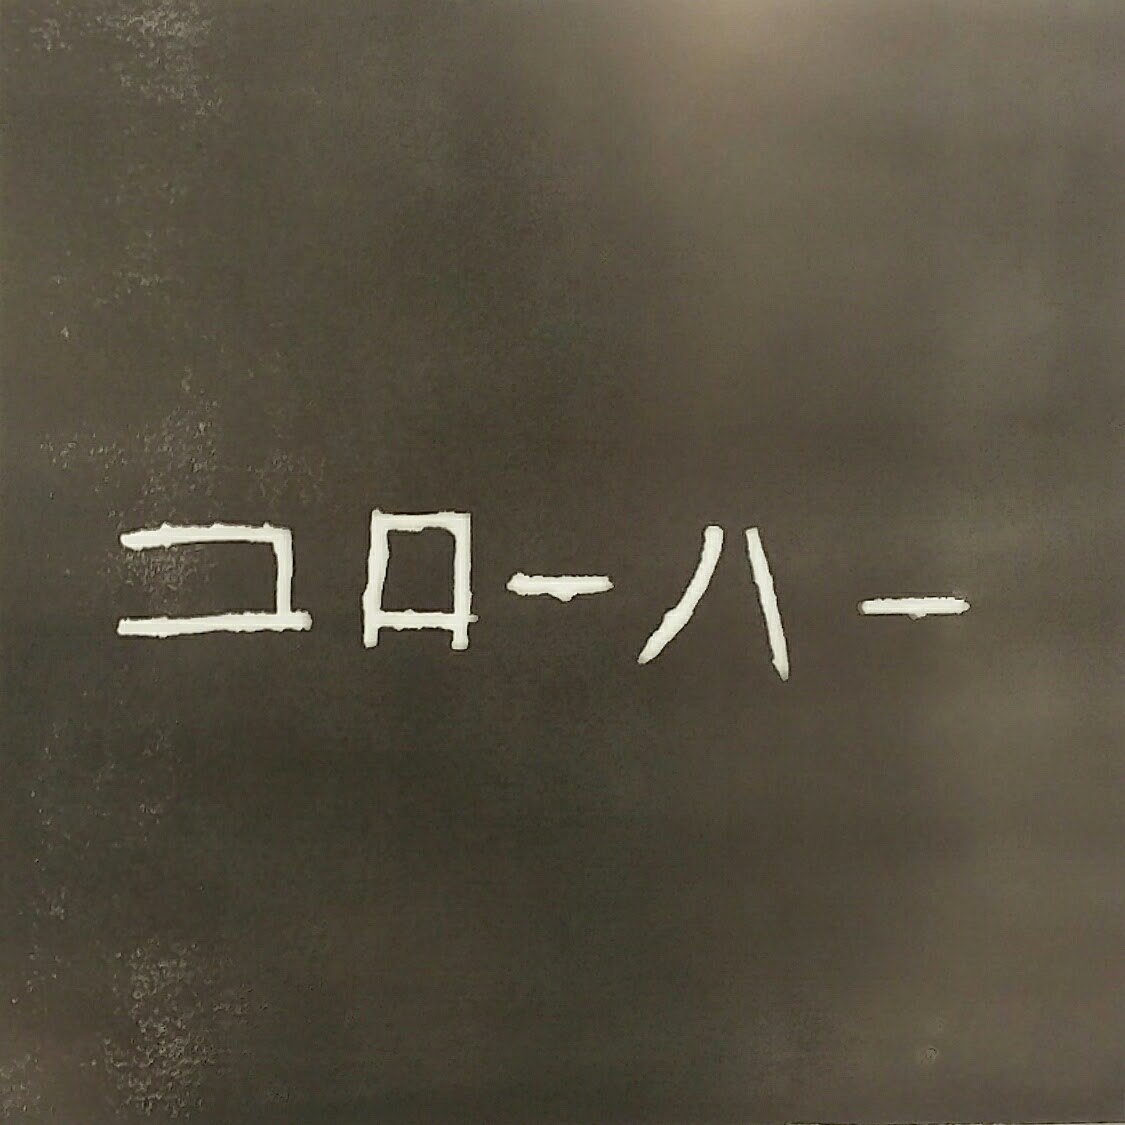 コローハー